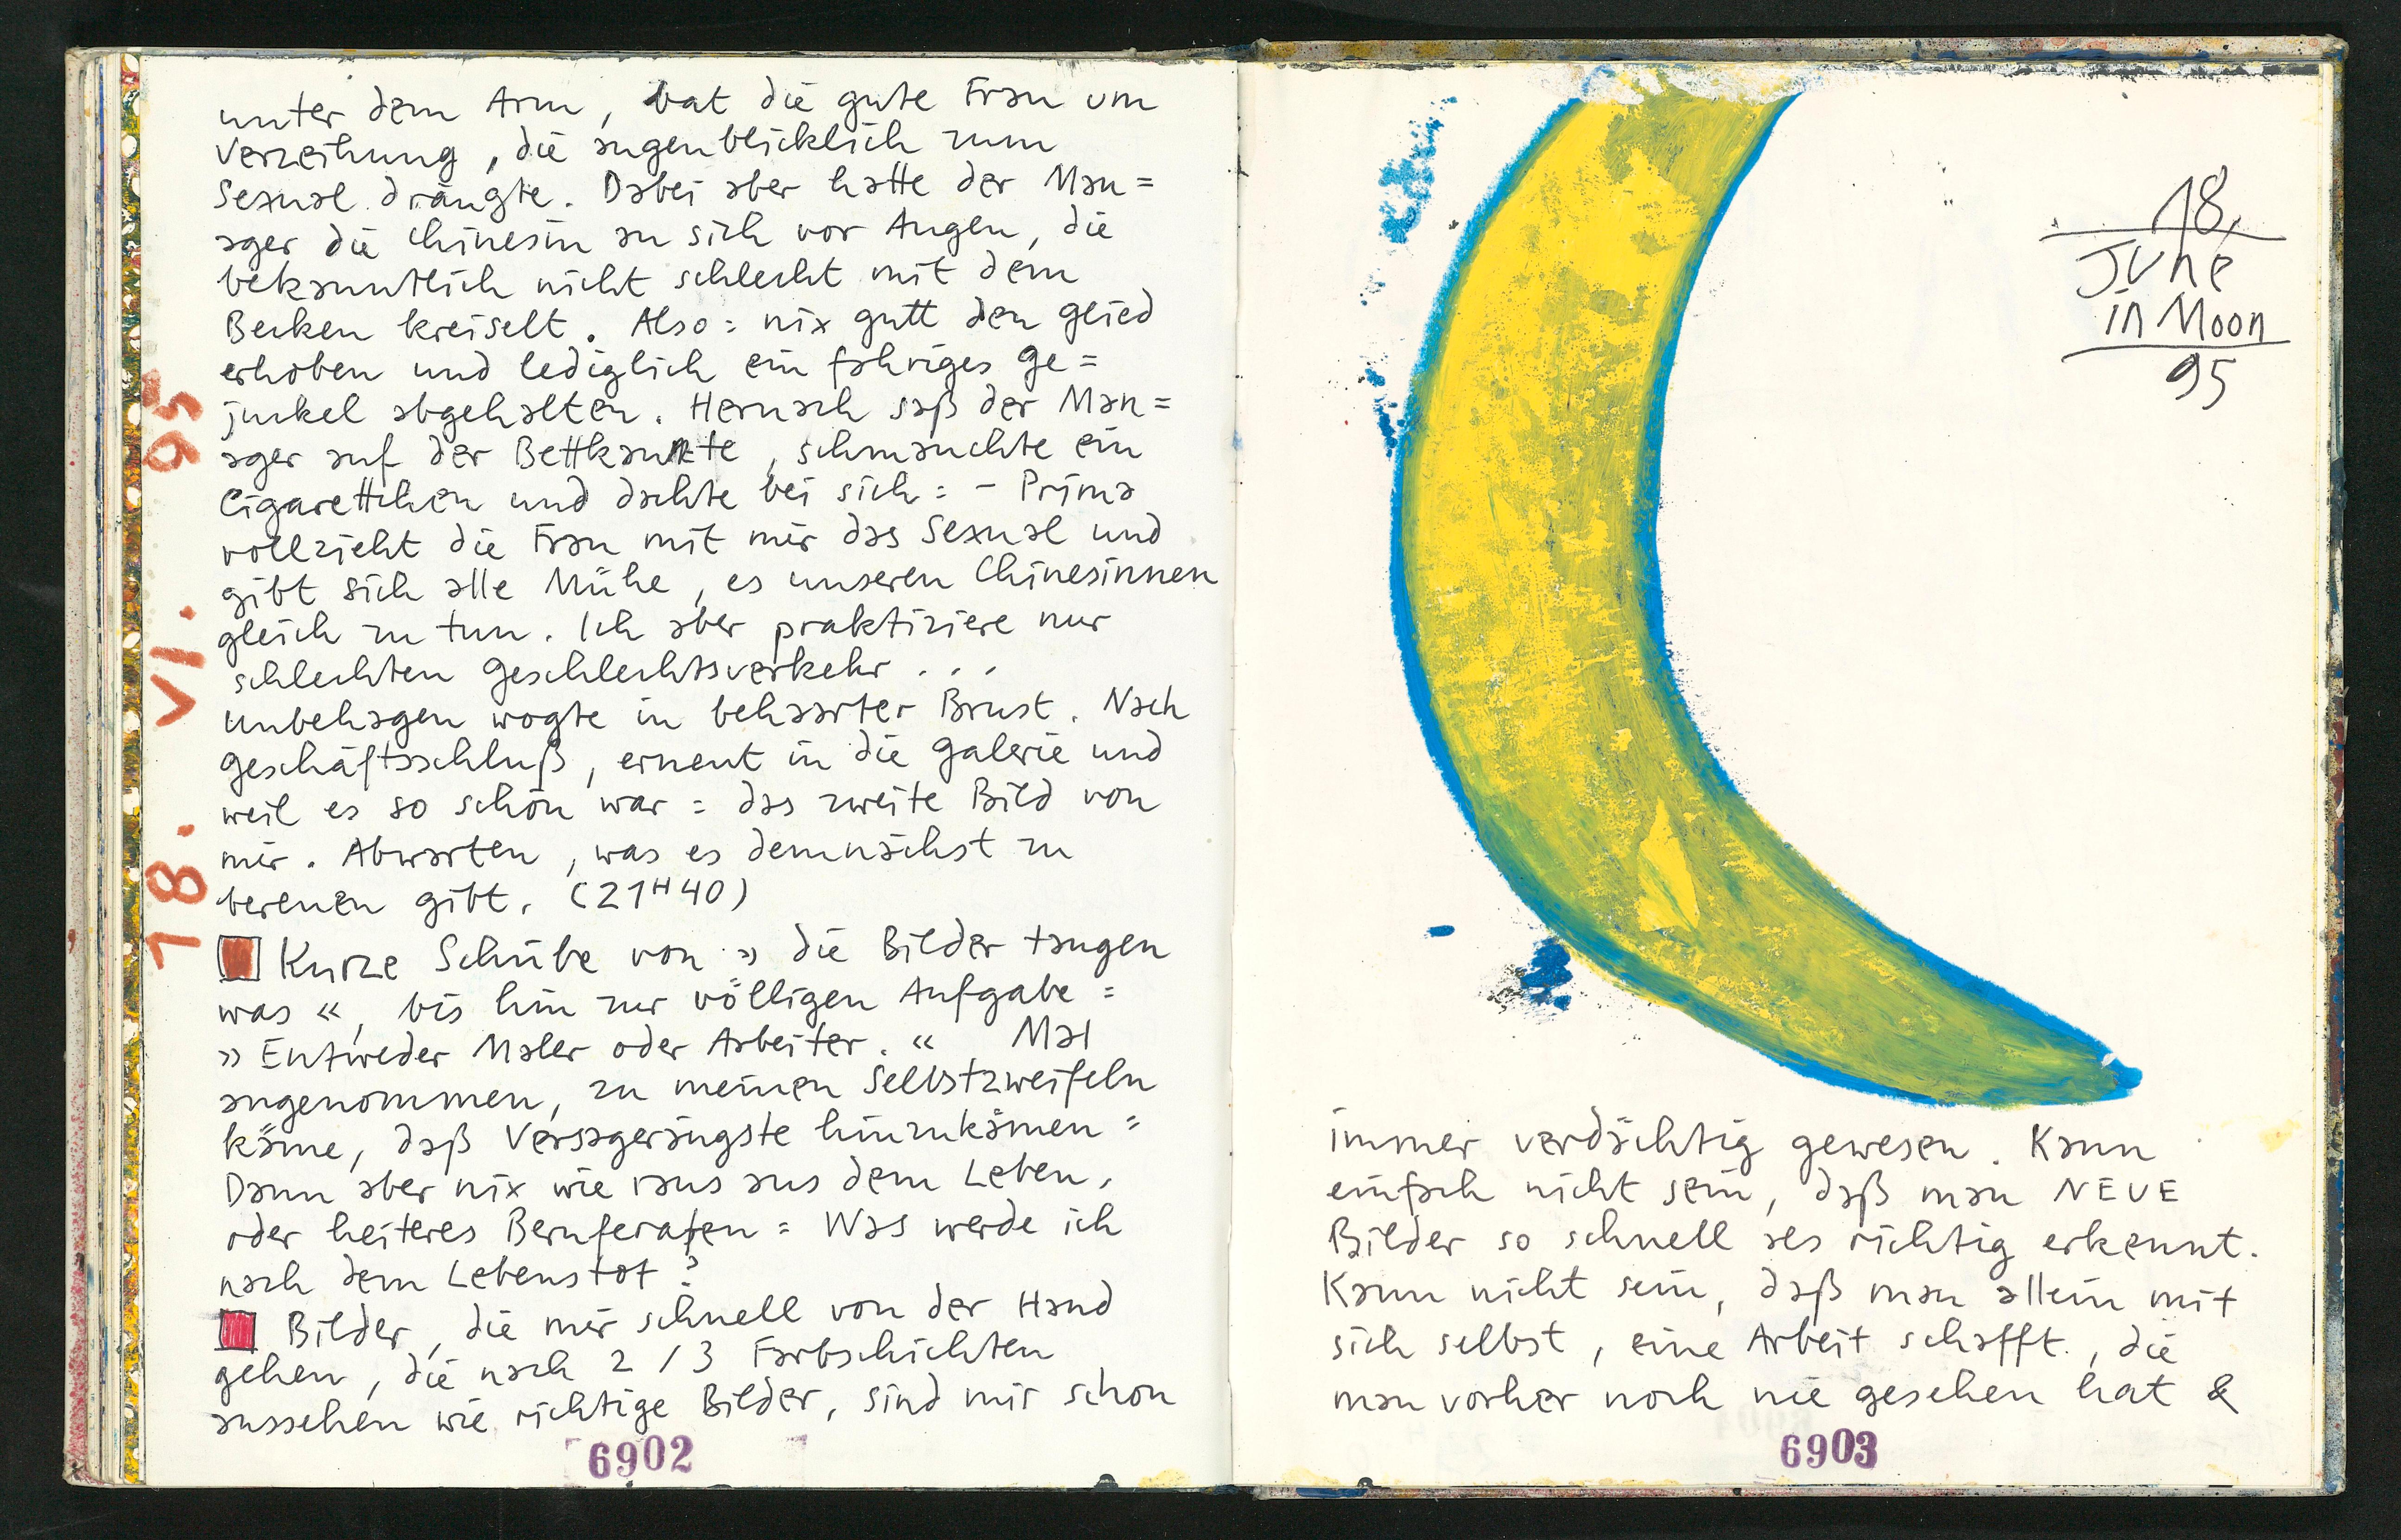 unter dem Arm, bat die gute Frau um
Verzeihung, die augenblicklich zum
Sexual drängte. Dabei aber hatte der Man=
ager die Chinesin an sich vor Augen, die
bekanntlich nicht schlecht mit dem
Becken kreiselt. Also: nix gutt den glied
erhoben und lediglich ein fahriges ge=
juckel abgehalten. Hernach saß der Man=
ager auf der Bettkannte, schmauchte ein
Cigarettchen und dachte bei sich: - Prima
vollzieht die Frau mit mir das Sexual und
gibt sich alle Mühe, es unseren Chinesinnen
gleich zu tun. Ich aber praktiziere nur
schlechten Geschlechtsverkehr...
Unbehagen wogte in behaarter Brust. Nach
geschäftsschluß, erneut in die galerie und
weil es so schön war: das zweite Bild von
mir. Abwarten, was es demnächst zu
bereuen gibt. (21H40)
Kurze Schübe von »die Bilder taugen
was«, bis hin zur völligen Aufgabe:
»Entweder Maler oder Arbeiter.« Mal
angenommen, zu meinen Selbstzweifeln
käme, daß Versagerängste hinzukämen:
Dann aber nix wie raus aus dem Leben,
oder heiteres Beruferaten: Was werde ich
nach dem Lebenstot?
Bilder, die mir schnell von der Hand
gehen, die nach 2/3 Farbschichten
aussehen wie richtige Bilder, sind mir schon
6902
18. VI. 95
18.
JUNE
in Moon
95
immer verdächtig gewesen. Kann
einfach nicht sein, daß man NEUE
Bilder so schnell als richtig erkennt.
Kann nicht sein, daß man allein mit
sich selbst, eine Arbeit schafft, die
man vorher noch nie gesehen hat &
6903